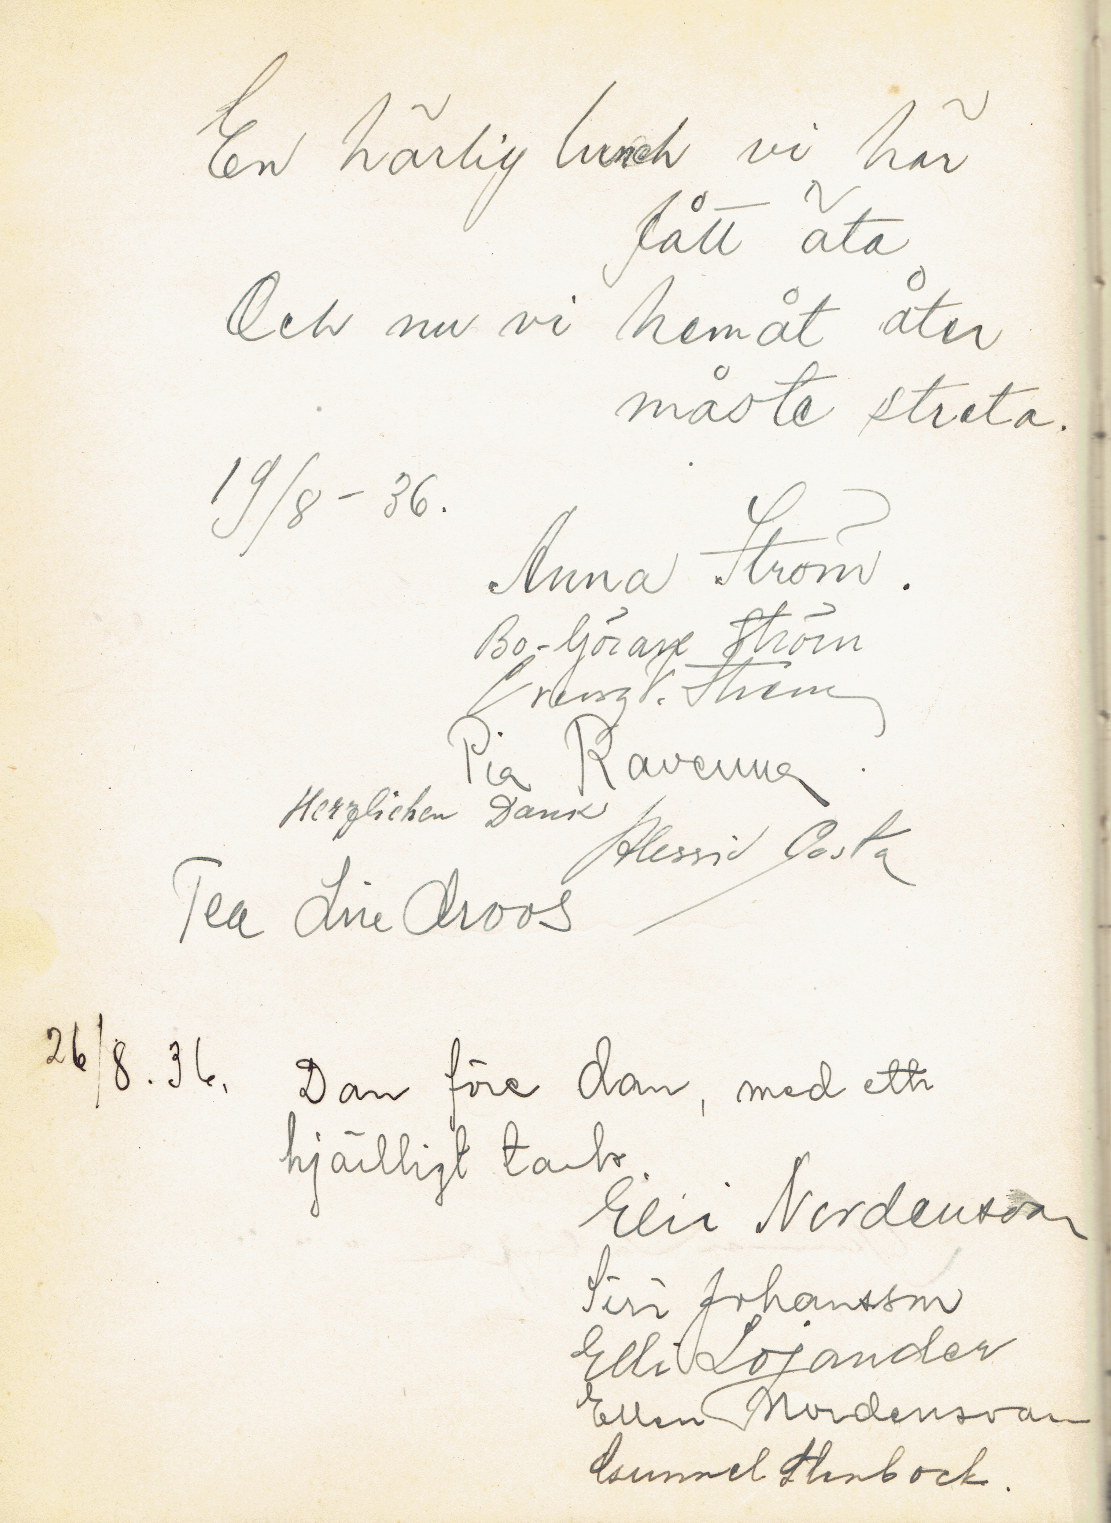 En härlig lunch vi här
fått äta
Och nu vi hemåt åter
måste streta.
19/8 - 36.
Anna Ström.
Bo-Göran Ström
V. Ström
Pia Ravenna
Herzlichen Dank
Alessio Costa
Tea Lindroos
26/8. 36. Dan före dan, med ett
hjälligt tack.
Elii Nordensvan
Siri Johansson
Elli Lojander
Ellen Nordensvan
Gunnel Stenbock.